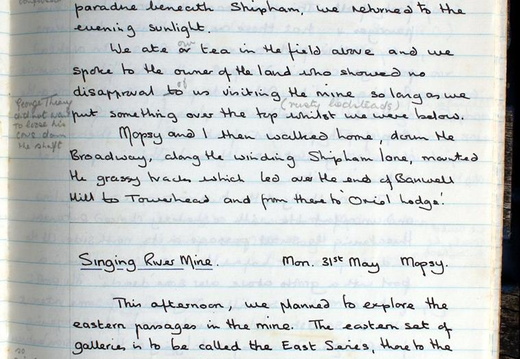 paradise beneath Shipham, we returned to the
evening sunlight.
We ate our tea in the field above and we
spoke to the owner of the land who showed no
disapproval to of us visiting the mine so long as we
put something over the top whilst we were below.
(rusty bedsteads)
George Theory
did not want
to loose his
cows down
the shaft
Mopsy and I then walked home, down the
Broadway, along the winding Shipham lane, mounted
the grassy tracks which led over the end of Banwell
Hill to Towerhead and from there to 'Oriol Lodge'.
Singing River Mine. Mon. 31st May Mopsy.
This afternoon, we planned to explore the
eastern passages in the mine. The eastern set of
galleries is to be called the East Series, those to the